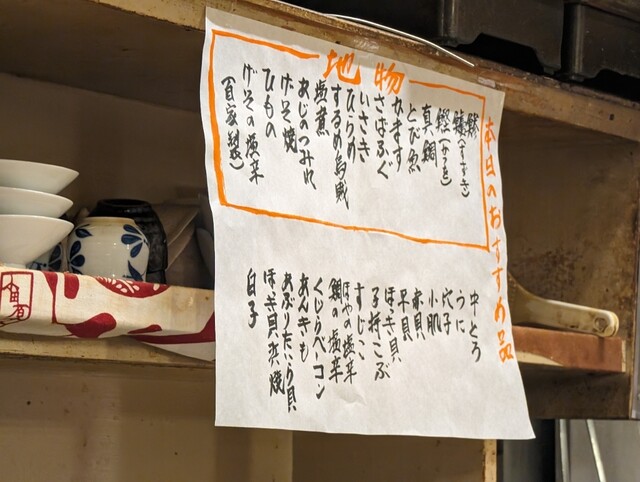 本日のおすすめ品
地物
鱸(すずき)
鰹(かつを)
真鯛
とび魚
かます
さばふぐ
いさき
ひらめ
するめ烏賊
塩煮
あじのつみれ
げそ焼
ひもの
げその塩辛
(自家製)
中とろ
うに
穴子
小肌
赤貝
平貝
ほき貝
子持こぶ
すじこ
ほやの塩辛
鯛の塩辛
くじらベーコン
あんきも
あぶりたいら貝
ほき貝浜焼
白子